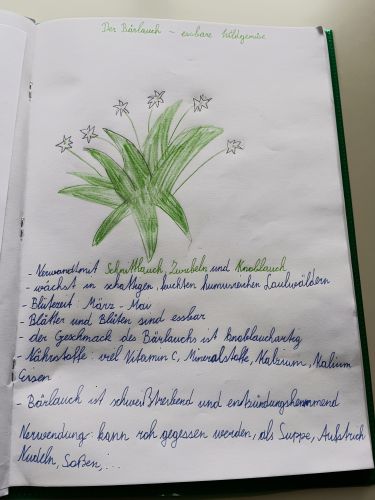 Der Bärlauch - essbare Wildgemüse
- Verwandt mit Schnittlauch, Zwiebeln und Knoblauch
- wächst in schattigen, feuchten humusreichen Laubwäldern
- Blütezeit: März - Mai
- Blätter und Blüten sind essbar
- der Geschmack des Bärlauchs ist knoblauchartig
- Nährstoffe: viel Vitamin C, Mineralstoffe, Kalzium, Kalium
Eisen
- Bärlauch ist schweißtreibend und entzündungshemmend
Verwendung: kann roh gegessen werden, als Suppe, Aufstrich
Nudeln, Soßen, ...